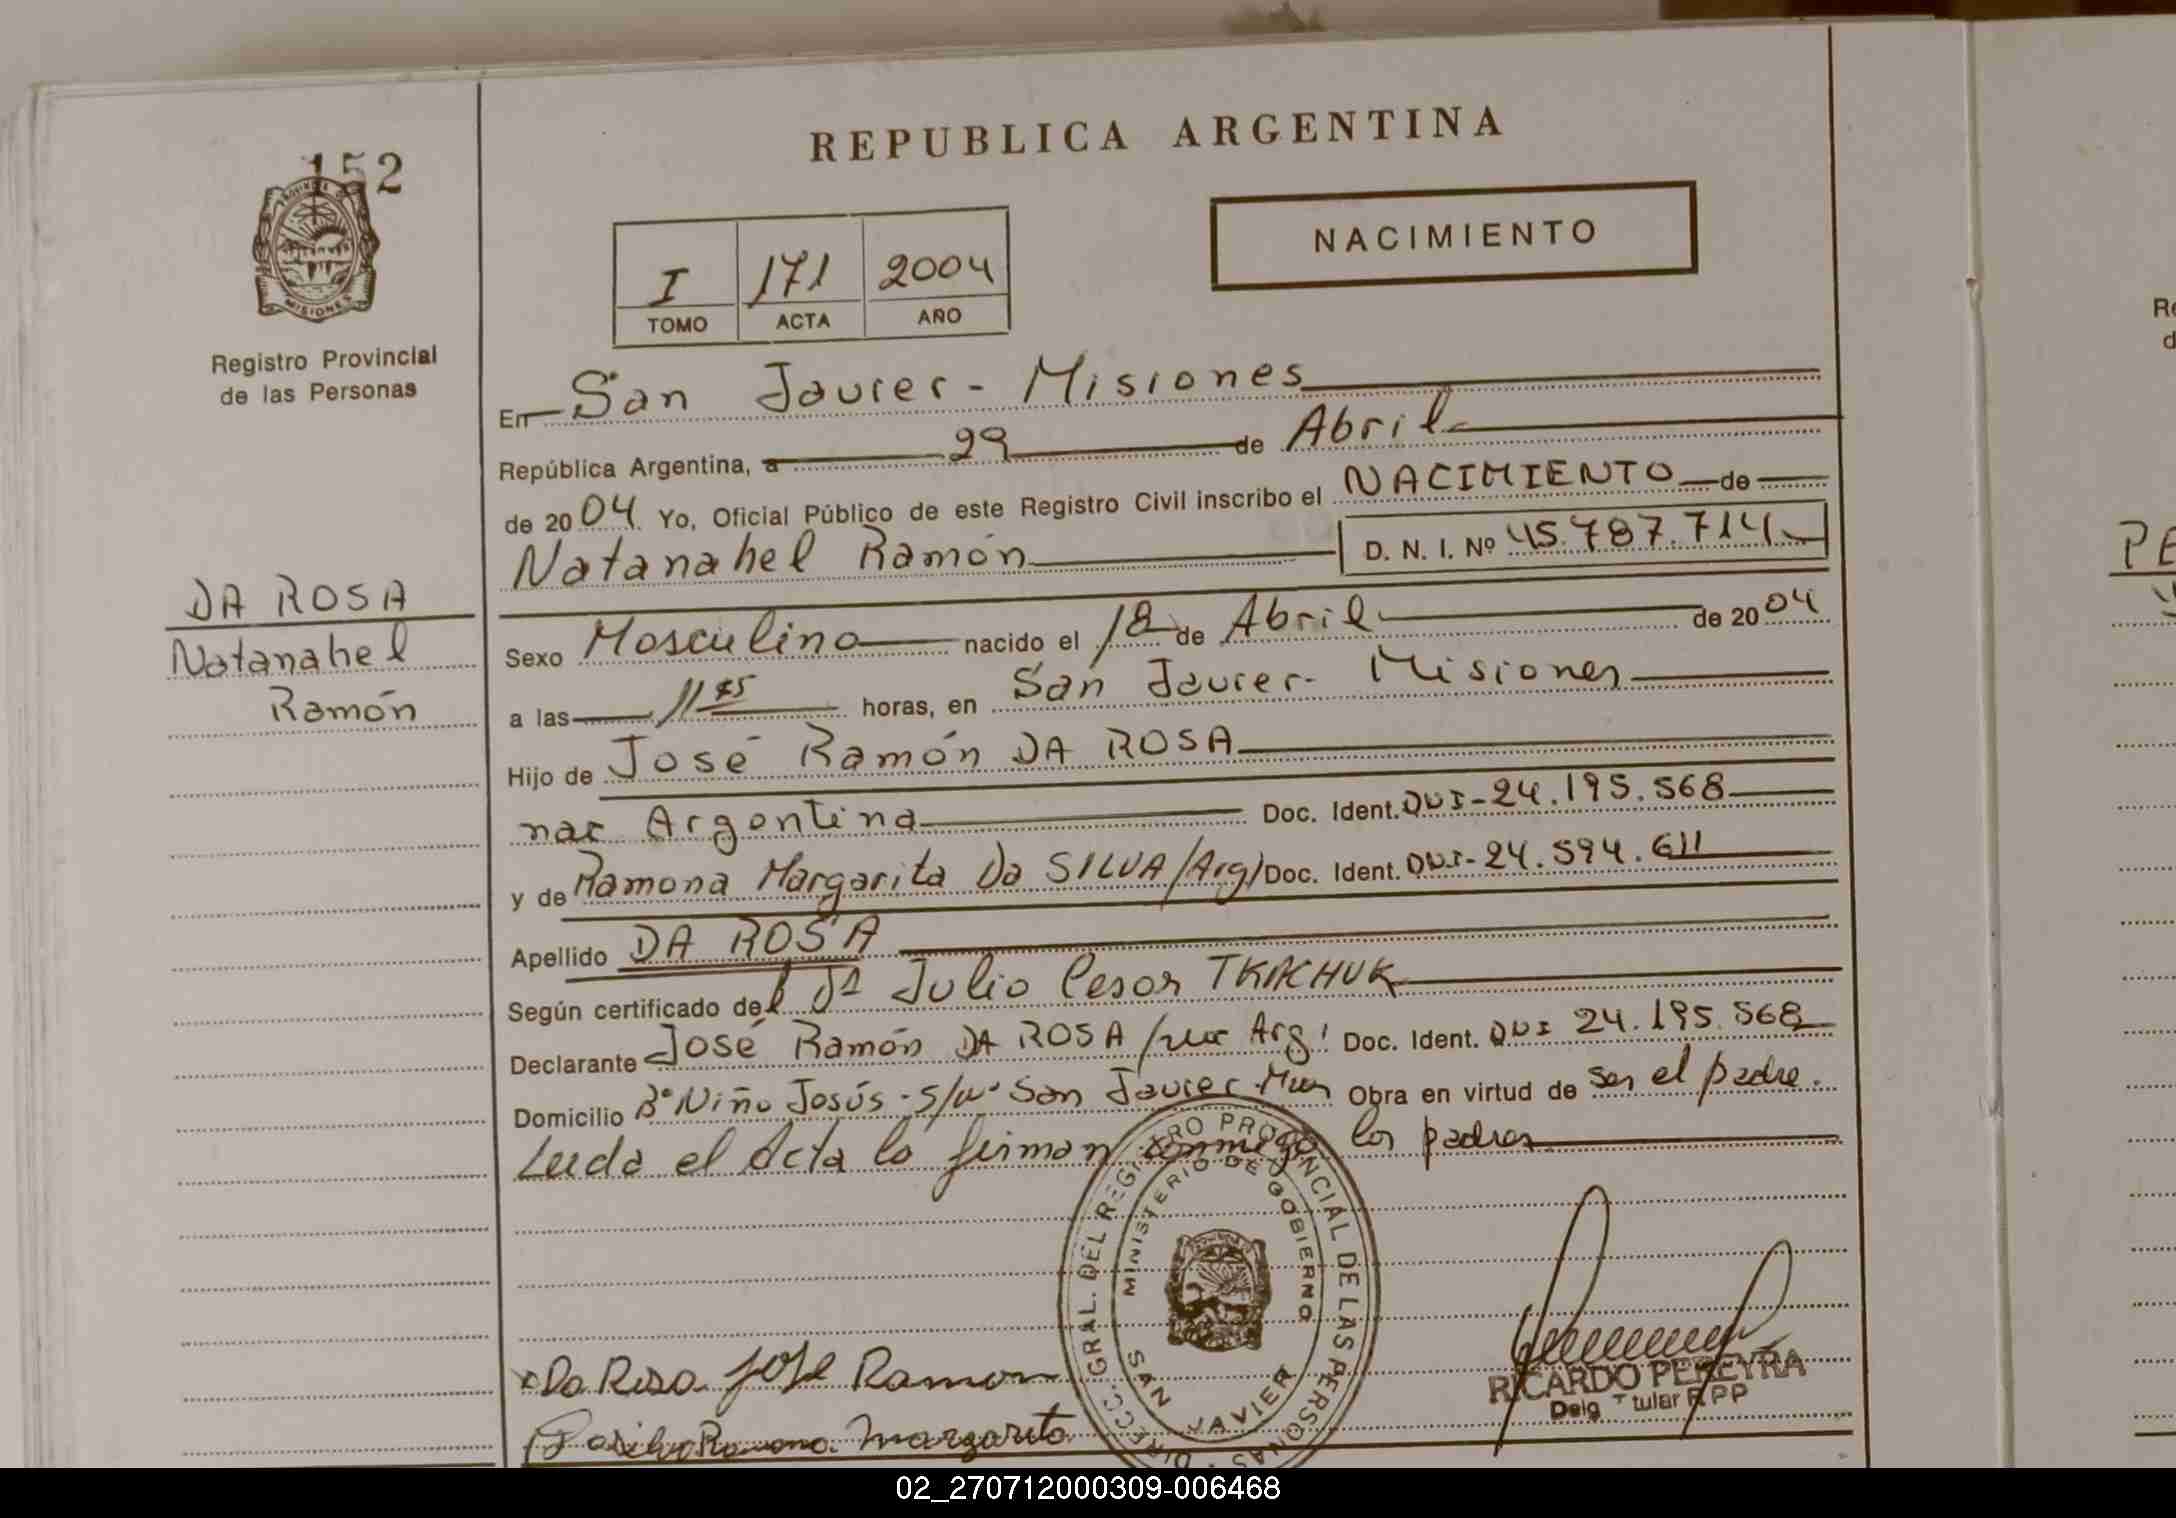 152
Registro Provincial
de las Personas
DA ROSA
Natanahel
Ramón
REPUBLICA ARGENTINA
NACIMIENTO
I 171 2004
TOMO ACTA AÑO
En San Javier - Misiones
República Argentina, a 29 de Abril
de 2004 Yo, Oficial Público de este Registro Civil inscribo el NACIMIENTO de
Natanahel Ramón D. N. I. Nº 45.787.714
Sexo Masculino nacido el 18 de Abril de 2004
a las 11 horas, en San Javier - Misiones
Hijo de José Ramón DA ROSA
nac Argentina Doc. Ident. DNI-24.195.568
y de Ramona Margarita Da SILVA/Arg/ Doc. Ident. DNI-24.594.611
Apellido DA ROSA
Según certificado del Julio Cesar TKACHUK
Declarante José Ramón DA ROSA /nac Arg/ Doc. Ident. DNI 24.195.568
Domicilio Bº Niño Jesús - S/Nº San Javier - Mnes Obra en virtud de ser el padre.
Leída el Acta la firman conmigo los padres
DIRECC. GRAL. DEL REGISTRO PROVINCIAL DE LAS PERSONAS
MINISTERIO DE GOBIERNO
SAN JAVIER
Da Rosa José Ramon
Ramona Margarita
RICARDO PEREYRA
Delg Titular RPP
PE
02_270712000309-006468